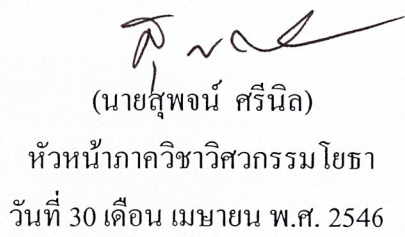 (นายสุพจน์ ศรีนิล)
หัวหน้าภาควิชาวิศวกรรมโยธา
วันที่ 30 เดือน เมษายน พ.ศ. 2546